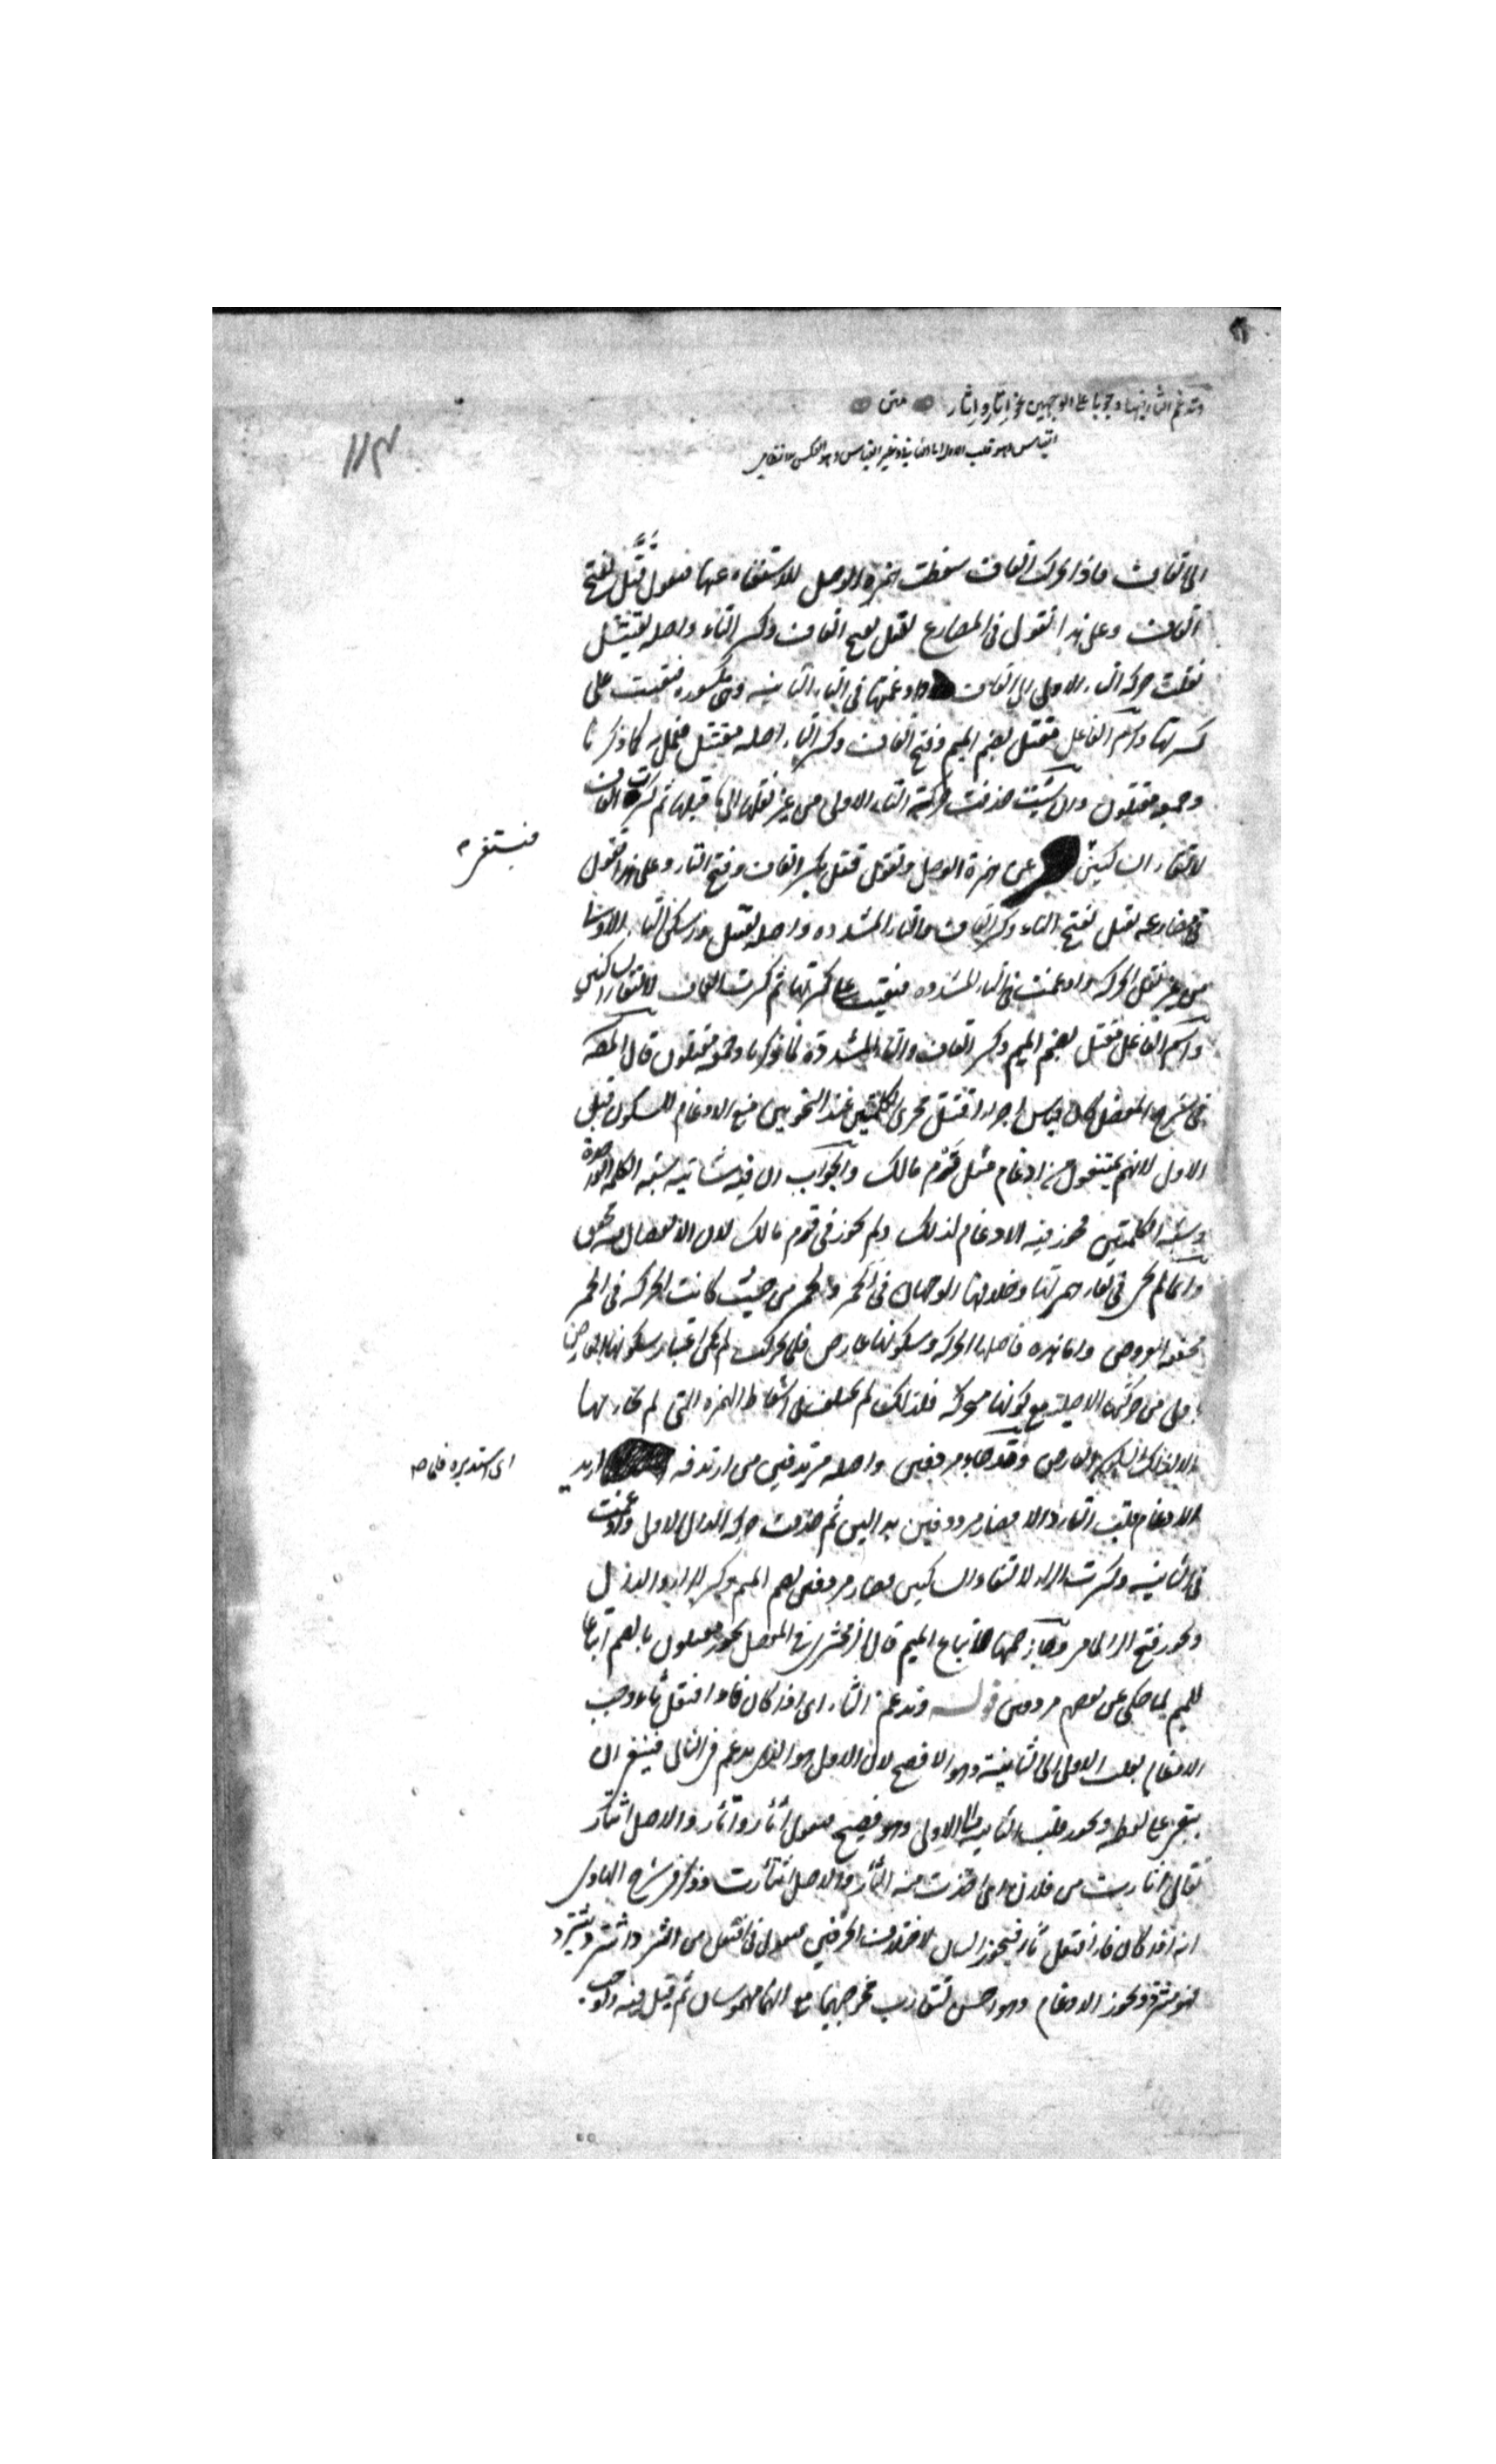 وتدغم الثاء فيها وجوبا على الوجهين نحو اثار واتار متن
القياس وهو قلب الاول الى الثانية وغير القياس وهو العكس
١١٤
الى القاف فاذا تحرك القاف سقطت همزة الوصل للاستغناء عنها فتقول قَتَّل بفتح
القاف وعلى هذا تقول في المضارع يقتل بفتح القاف وكسر التاء واصله يقتتل
نقلت حركة التاء الاولى الى القاف وادغمتها في التاء الثانية وهي مكسورة فبقيت على
كسرتها واسم الفاعل مقتل بضم الميم وفتح القاف وكسر التاء اصله مقتتل فعمل به كما ذكرنا
وجمعه مقتلون وان شئت حذفت حركة التاء الاولى من غير نقلها الى ما قبلها ثم كسرت القاف
لالتقاء الساكنين عن همزة الوصل وتقول قتل بكسر القاف وفتح التاء وعلى هذا تقول
فيستغنى
في مضارعه يقتل بفتح الياء وكسر القاف والتاء المشددة واصله يقتتل سكن التاء الاولى
من غير نقل الحركة وادغمت في التاء المشددة فبقيت على كسرتها ثم كسرت القاف لالتقاء الساكنين
واسم الفاعل مقتل بضم الميم وكسر القاف والتاء المشددة لما ذكرنا وجمعه مقتلون قال المص
في شرح المفصل كان قياس اجراء اقتتل مجرى الكلمتين عند النحويين منع الادغام للسكون قبل
الاول لانهم يمتنعون من ادغام مثل قوم مالك والجواب ان فيه شائبة شبه الكلمة الواحدة
وشبه الكلمتين فجوز فيه الادغام لذلك ولم يجوز في قوم مالك لان الانفصال محقق
وانما لم يجز في بقاء همزتها وحذفها الوجهان في الحمر من حيث كانت الحركة في الحمر
محققة العروض واما هذه فاصلها الحركة وسكونها عارض فلما تحركت لم يكن اعتبار سكونها العارض
باولى من حركتها الاصلية مع كونها متحركة فلذلك لم يختلف في اسقاط الهمزة التي لم يجاء بها
الا لذلك السكون العارض وقد جاء مردفين واصله مرتدفين من ارتدفه اريد
اى استدبره فلما
الادغام قلبت التاء دالا فصار مرددفين بدالين ثم حذفت حركة الدال الاولى وادغمت
في الثانية وكسرت الراء لالتقاء الساكنين فصار مردفين بضم الميم وكسر الراء والدال
ويجوز فتح الراء لما مر وجاز ضمها لاتباع الميم قال الزمخشرى في المفصل يجوز مقتلون بالضم اتباعا
للميم لما حكى عن بعضهم مردفين قوله وتدغم الثاء اى اذا كان فاء افتعل ثاء وجب
الادغام بقلب الاولى الى الثانية وهو الافصح لان الاول هو الذى يدغم في الثانى فينبغى ان
يتغير على لفظه ويجوز قلب الثانية الى الاولى وهو فصيح فتقول اثّار واتّار والاصل اثتار
يقال اثارت من فلان اى اخذت منه الثار والاصل اثتأرت وذكر في شرح الهادى
انه اذا كان فاء افتعل ثاء فيجوز البيان لاختلاف الحرفين فتقول في افتعل من الثرد اثترد يثترد
فهو مثترد ويجوز الادغام وهو احسن لتقارب مخرجهما مع انهما مهموسان ثم قيل فيه